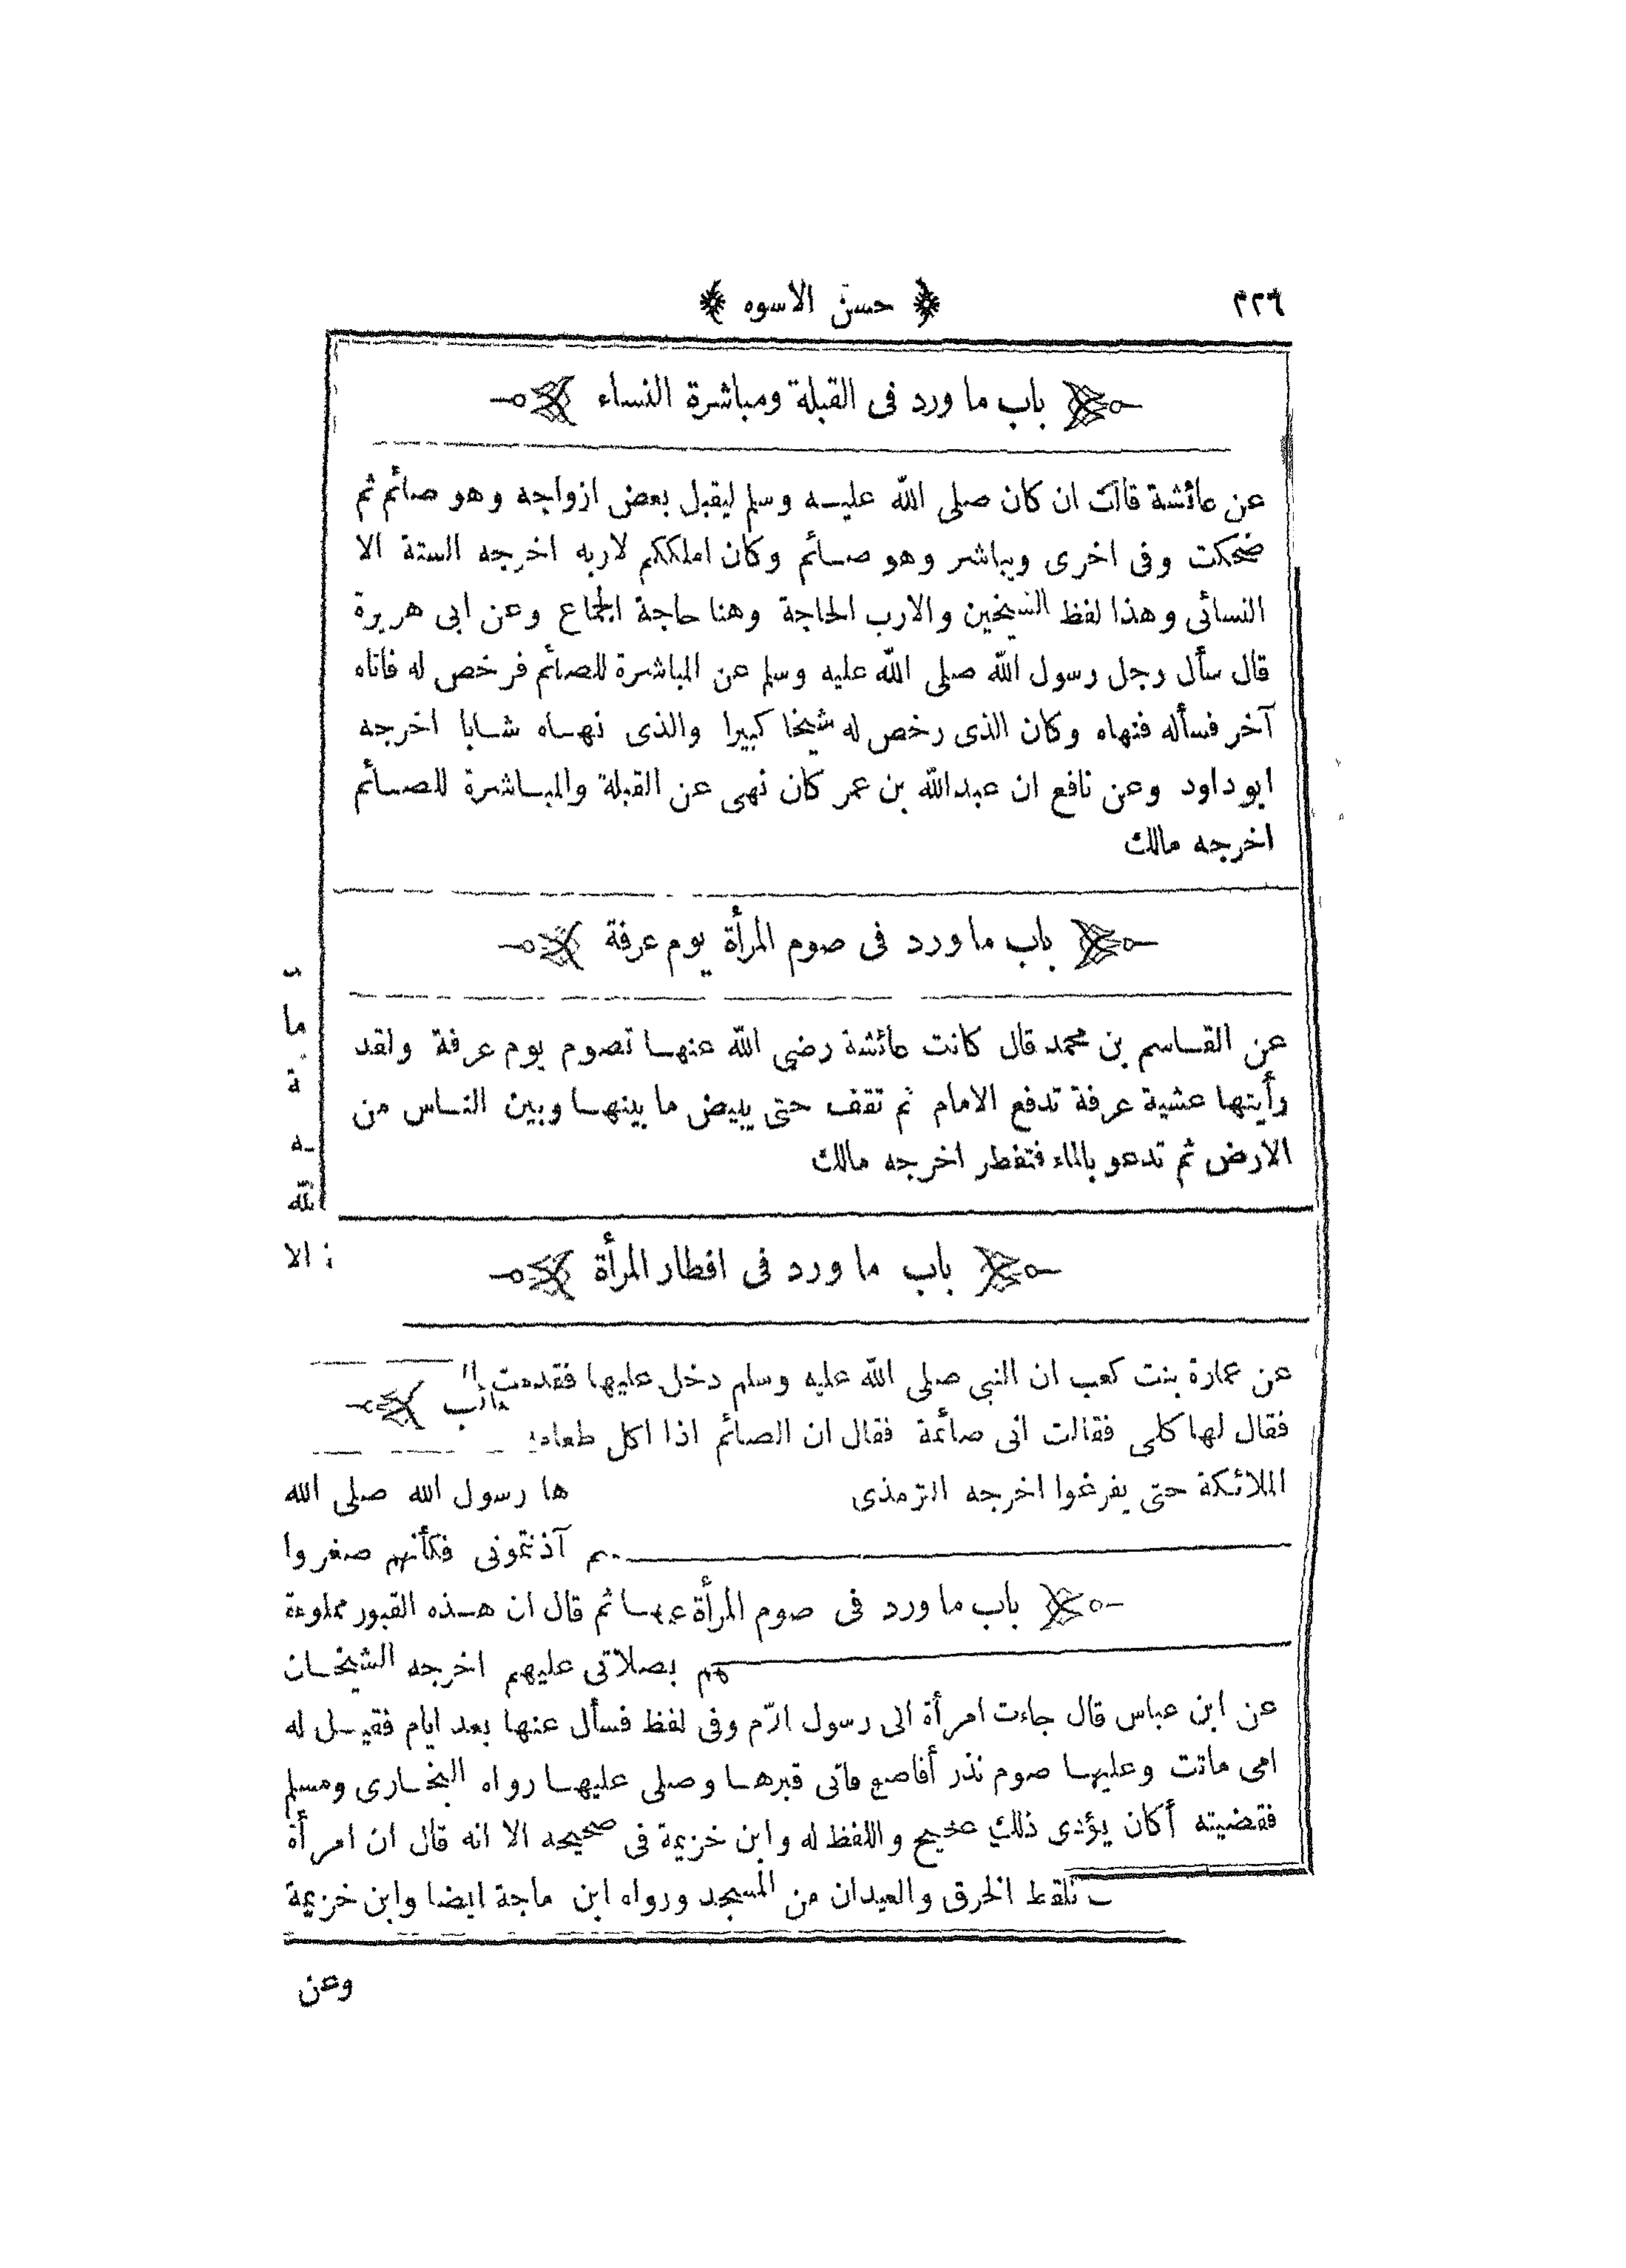 ٣٢٦
﴿ حسن الاسوه ﴾
باب ما ورد فى القبلة ومباشرة النساء
عن عائشة قالت ان كان صلى الله عليه وسلم ليقبل بعض ازواجه وهو صائم ثم
ضحكت وفى اخرى ويباشر وهو صائم وكان املككم لاربه اخرجه الستة الا
النسائى وهذا لفظ الشيخين والارب الحاجة وهنا حاجة الجماع وعن ابى هريرة
قال سأل رجل رسول الله صلى الله عليه وسلم عن المباشرة للصائم فرخص له فاتاه
آخر فسأله فنهاه وكان الذى رخص له شيخا كبيرا والذى نهاه شابا اخرجه
ابو داود وعن نافع ان عبدالله بن عمر كان نهى عن القبلة والمباشرة للصائم
اخرجه مالك
باب ما ورد فى صوم المرأة يوم عرفة
ما
عن القاسم بن محمد قال كانت عائشة رضى الله عنها تصوم يوم عرفة ولقد
ة
رأيتها عشية عرفة تدفع الامام ثم تقف حتى يبيض ما بينها وبين الناس من
ـه
الارض ثم تدعو بالماء فتفطر اخرجه مالك
لله
باب ما ورد فى افطار المرأة
: الا
عن عمارة بنت كعب ان النبي صلى الله عليه وسلم دخل عليها فقدمت
فقال لها كلى فقالت انى صائمة فقال ان الصائم اذا اكل
الملائكة حتى يفرغوا اخرجه الترمذى
ها رسول الله صلى الله
آذنتمونى فكأنهم صغروا
باب ما ورد فى صوم المرأة
ثم قال ان هذه القبور مملوءة
هم بصلاتى عليهم اخرجه الشيخان
عن ابن عباس قال جاءت امرأة الى رسول
وفى لفظ فسأل عنها بعد ايام فقيل له
امى ماتت وعليها صوم نذر أفاصو
فاتى قبرها وصلى عليها رواه البخارى ومسلم
فقضيته أكان يؤدى ذلك
واللفظ له وابن خزيمة فى صحيحه الا انه قال ان امرأة
تلقط الخرق والعيدان من المسجد ورواه ابن ماجة ايضا وابن خزيمة
وعن